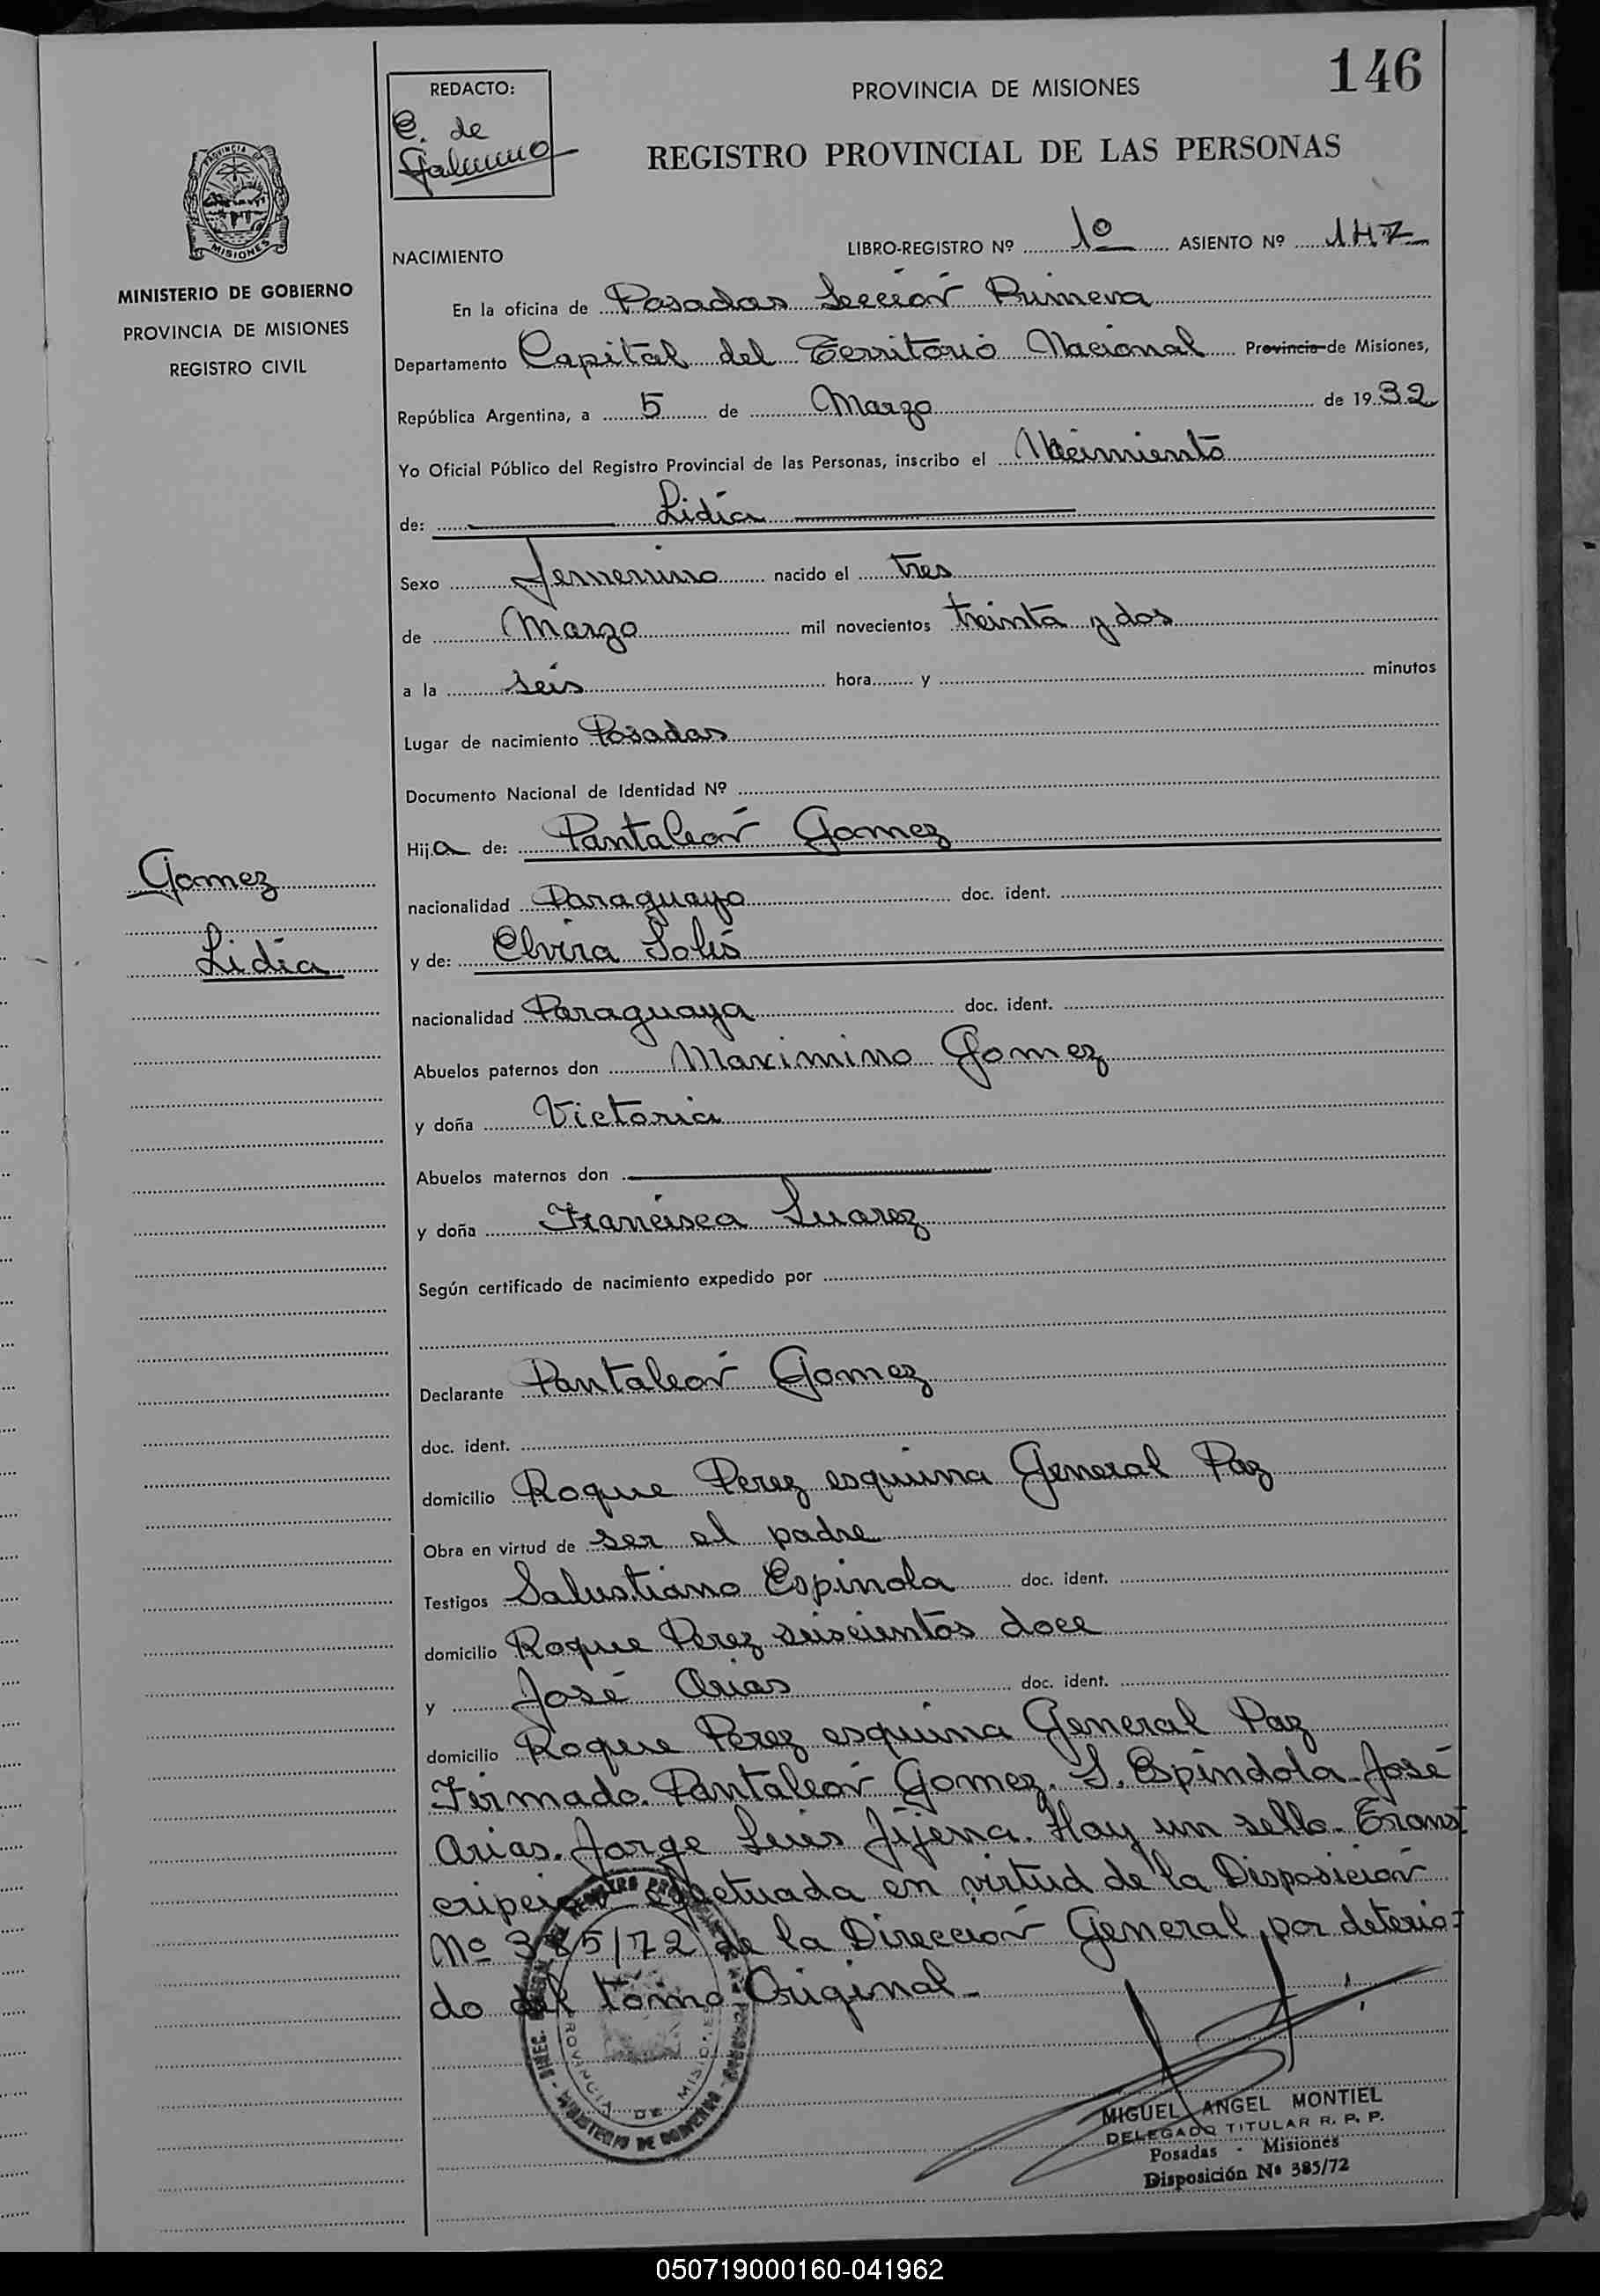 146
REDACTO:
C. de
PROVINCIA DE MISIONES
REGISTRO PROVINCIAL DE LAS PERSONAS
PROVINCIA DE
MISIONES
MINISTERIO DE GOBIERNO
PROVINCIA DE MISIONES
REGISTRO CIVIL
NACIMIENTO
LIBRO-REGISTRO Nº 1º ASIENTO Nº 147
En la oficina de Posadas Sección Primera
Departamento Capital del Territorio Nacional Provincia de Misiones,
República Argentina, a 5 de Marzo de 1932
Yo Oficial Público del Registro Provincial de las Personas, inscribo el Nacimiento
de: Lidia
Sexo femenino nacido el tres
de Marzo mil novecientos treinta y dos
a la seis hora y minutos
Lugar de nacimiento Posadas
Documento Nacional de Identidad Nº
Hija de: Pantaleón Gomez
Gomez
nacionalidad Paraguayo doc. ident.
Lidia
y de: Elvira Solís
nacionalidad Paraguaya doc. ident.
Abuelos paternos don Maximino Gomez
y doña Victoria
Abuelos maternos don
y doña Francisca Suarez
Según certificado de nacimiento expedido por
Declarante Pantaleón Gomez
doc. ident.
domicilio Roque Perez esquina General Paz
Obra en virtud de ser el padre
Testigos Salustiano Espinola doc. ident.
domicilio Roque Perez seiscientos doce
y José Arias doc. ident.
domicilio Roque Perez esquina General Paz
Firmado. Pantaleón Gomez. S. Espindola. José
Arias. Jorge Luis Jijena. Hay un sello. Trans
cripción efectuada en virtud de la Disposición
Nº 385/72 de la Dirección General, por deterio=
do del tomo Original.
PROVINCIA DE MISIONES
MINISTERIO DE GOBIERNO
MIGUEL ANGEL MONTIEL
DELEGADO TITULAR R. P. P.
Posadas - Misiones
Disposición Nº 385/72
050719000160-041962